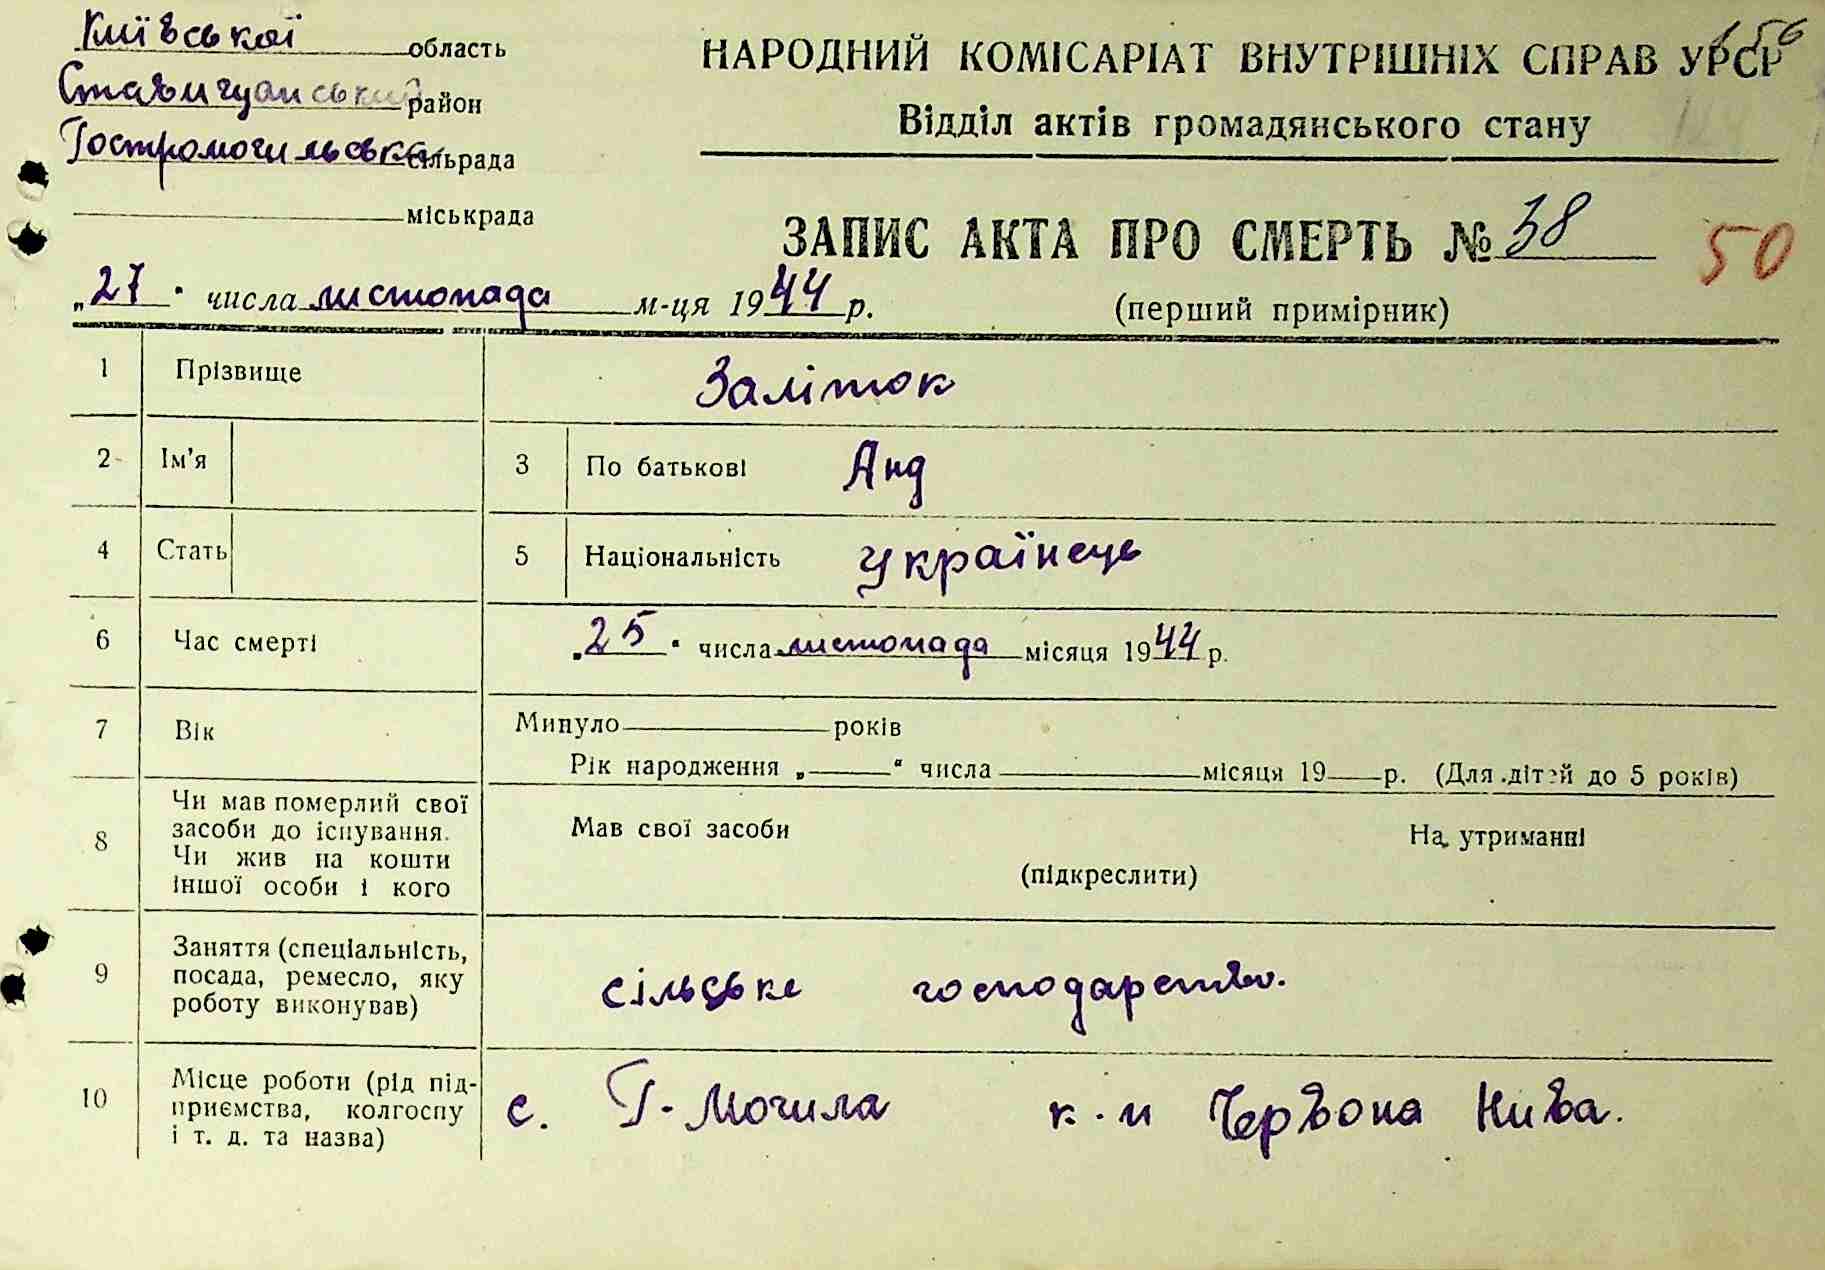 Київської область
Ставищанський район
Гостромогильська сільрада
міськрада
156
НАРОДНИЙ КОМІСАРІАТ ВНУТРІШНІХ СПРАВ УРСР
Відділ актів громадянського стану
ЗАПИС АКТА ПРО СМЕРТЬ № 38
50
„27" числа листопада м-ця 1944 р.
(перший примірник)
1 Прізвище Заліток
2 Ім'я 3 По батькові Анд
4 Стать 5 Національність українець
6 Час смерті „25" числа листопада місяця 1944 р.
7 Вік Минуло років
Рік народження „ " числа місяця 19 р. (Для дітей до 5 років)
8 Чи мав померлий свої
засоби до існування.
Чи жив на кошти
іншої особи і кого
Мав свої засоби На утриманні
(підкреслити)
9 Заняття (спеціальність,
посада, ремесло, яку
роботу виконував)
сільське господарство.
10 Місце роботи (рід під-
приємства, колгоспу
і т. д. та назва)
с. Г-Могила к-п Червона Нива.